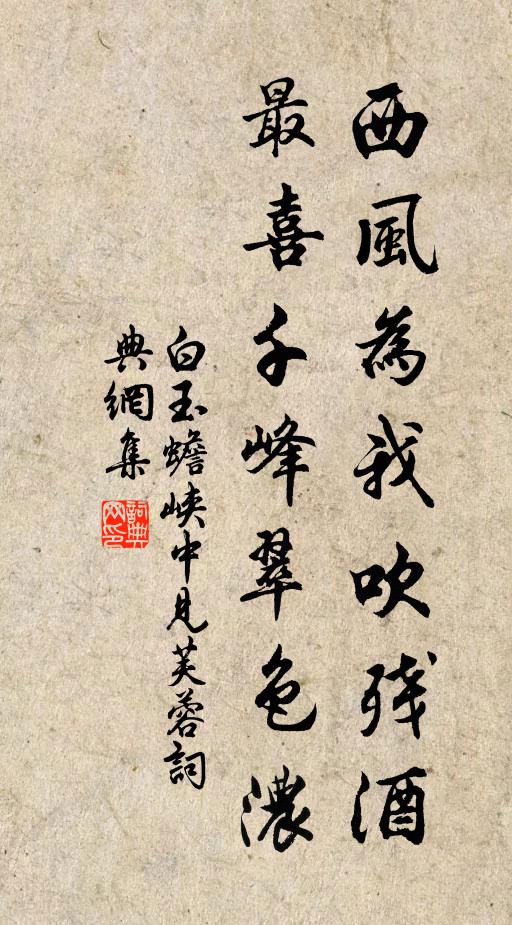 西風為我吹殘酒
最喜千峰翠色濃
白玉蟾峽中見芙蓉詞
典網集
詞典網印